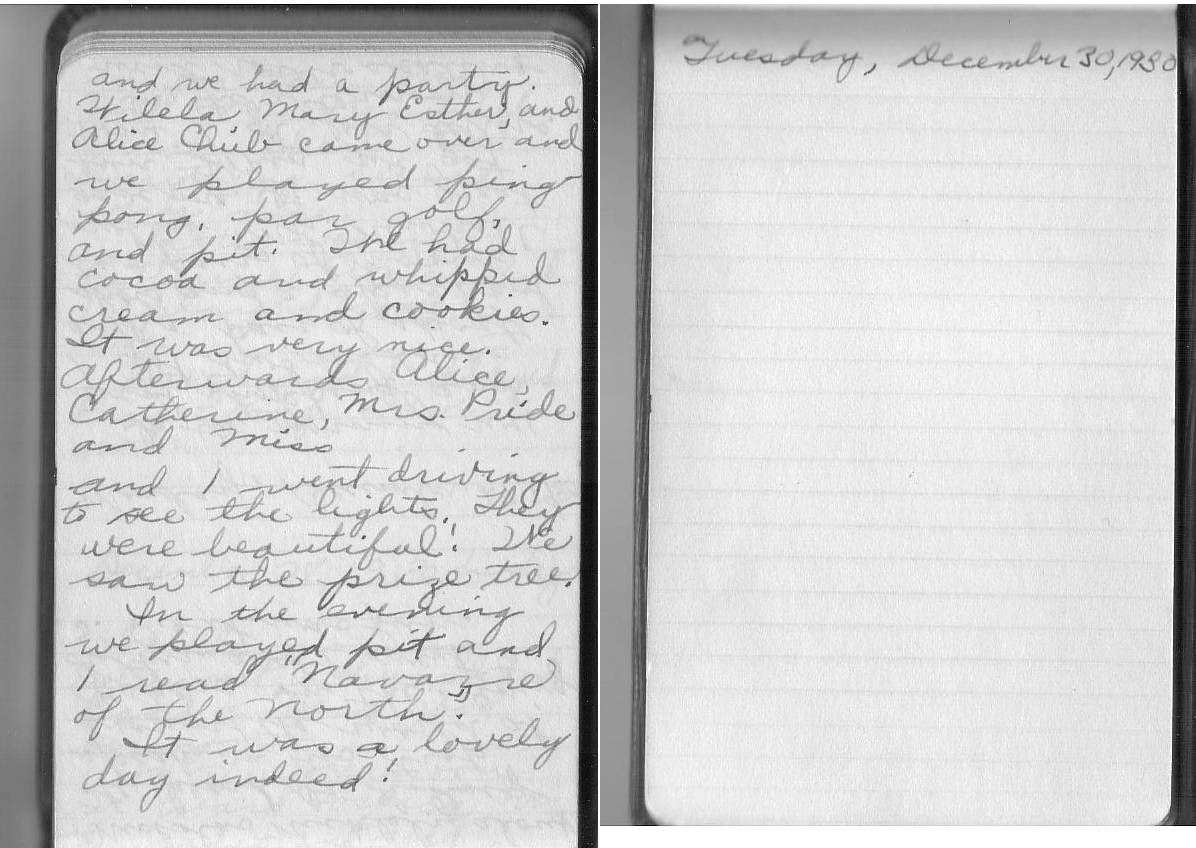 and we had a party.
Wilela, Mary Esther, and
Alice Chub came over and
we played ping
pong, par golf,
and pit. We had
cocoa and whipped
cream and cookies.
It was very nice.
Afterwards Alice,
Catherine, Mrs. Pride
and Miss
and I went driving
to see the lights. They
were beautiful! We
saw the prize tree.
In the evening
we played pit and
I read "Navarre
of the North".
It was a lovely
day indeed!
Tuesday, December 30, 1930